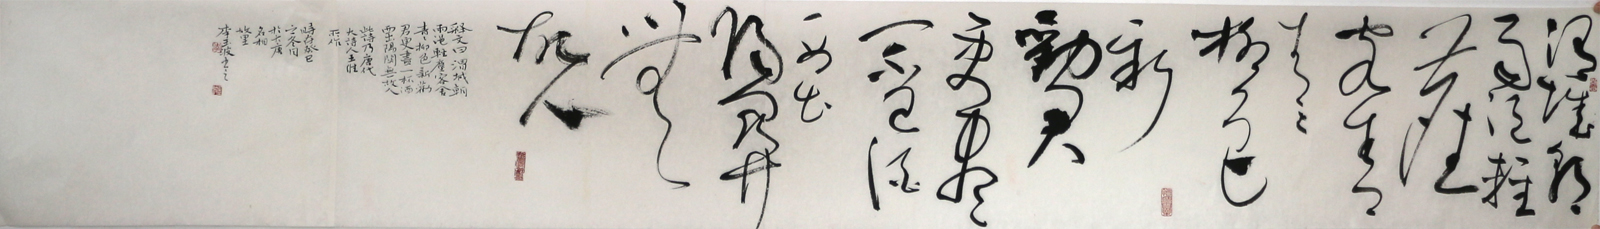 渭城朝
雨浥轻
尘
客舍
青〻
柳色
新
劝君
更尽
一杯酒
西出
阳关
无
故人
释文曰渭城朝
雨浥轻尘客舍
青〻柳色新劝
君更尽一杯酒
西出阳关无故人
此诗乃唐代
大诗人王维
所作
时在癸巳
之冬月
李